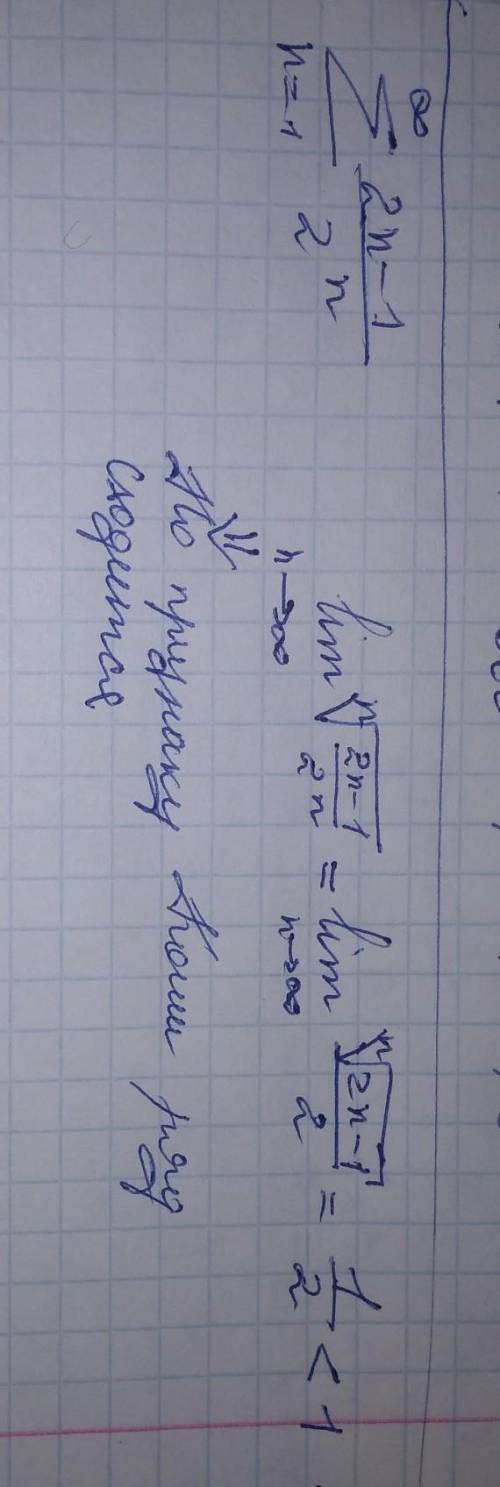 ∑_{n=1}^{∞} (2n-1)/2^n
lim_{n→∞} ⁿ√((2n-1)/2^n) = lim_{n→∞} ⁿ√(2n-1)/2 = 1/2 < 1
⇓
По признаку Коши ряд
сходится